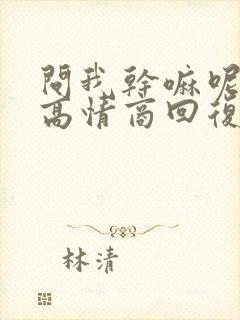 問我幹嘛呢
高情商回復
林清